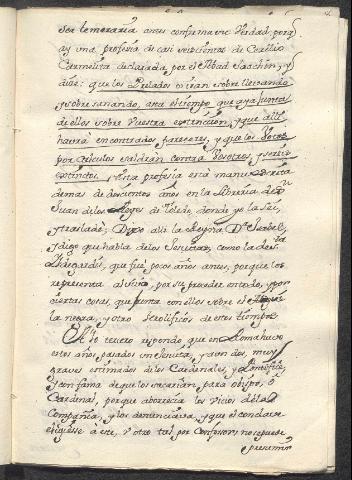 ser temeraria antes confirma ese Verdad, porq.
ay una profesia de casi seiscientos de Cirillo
Carmelita declarada por el Abad Joachin, y
dice: que los Prelados oiran sobre llevando
y sobre sanando, asta el tiempo que aya junta
de ellos sobre Vuestra extincion, y que alli
havrá encontrados pareseres, y que los Votos
por circulos saldran contra Vosotros, y sereis
extintos. Esta profesia está manuscrita
demas de doscientos años en la libreria de Sn
Juan de los Reyes de Toledo, donde yo la lei,
y trasladé; Dejo alli la Reyna Da. Isabel,
y digo que habla de los Jesuitas, como la de Sta
Hildegardis, que fué pocos años antes, porque los
representa al vivo, por su proceder en todo, y por
ciertas cosas, que junta con ellos sobre el
la negra, y otro de estos tiempos
A lo tercero respondo, que en Roma huvo
estos años pasados un Jesuita, y aun dos, muy
graves estimados de los Cardenales, y Pontifice,
con fama de que los sacarian para obispo, ó
Cardenal, porque aborrecia los vicios de la
Compañia, y los denunciava, y que el conclave
eligiesse á este, v otro tal por Confesor, no se puede